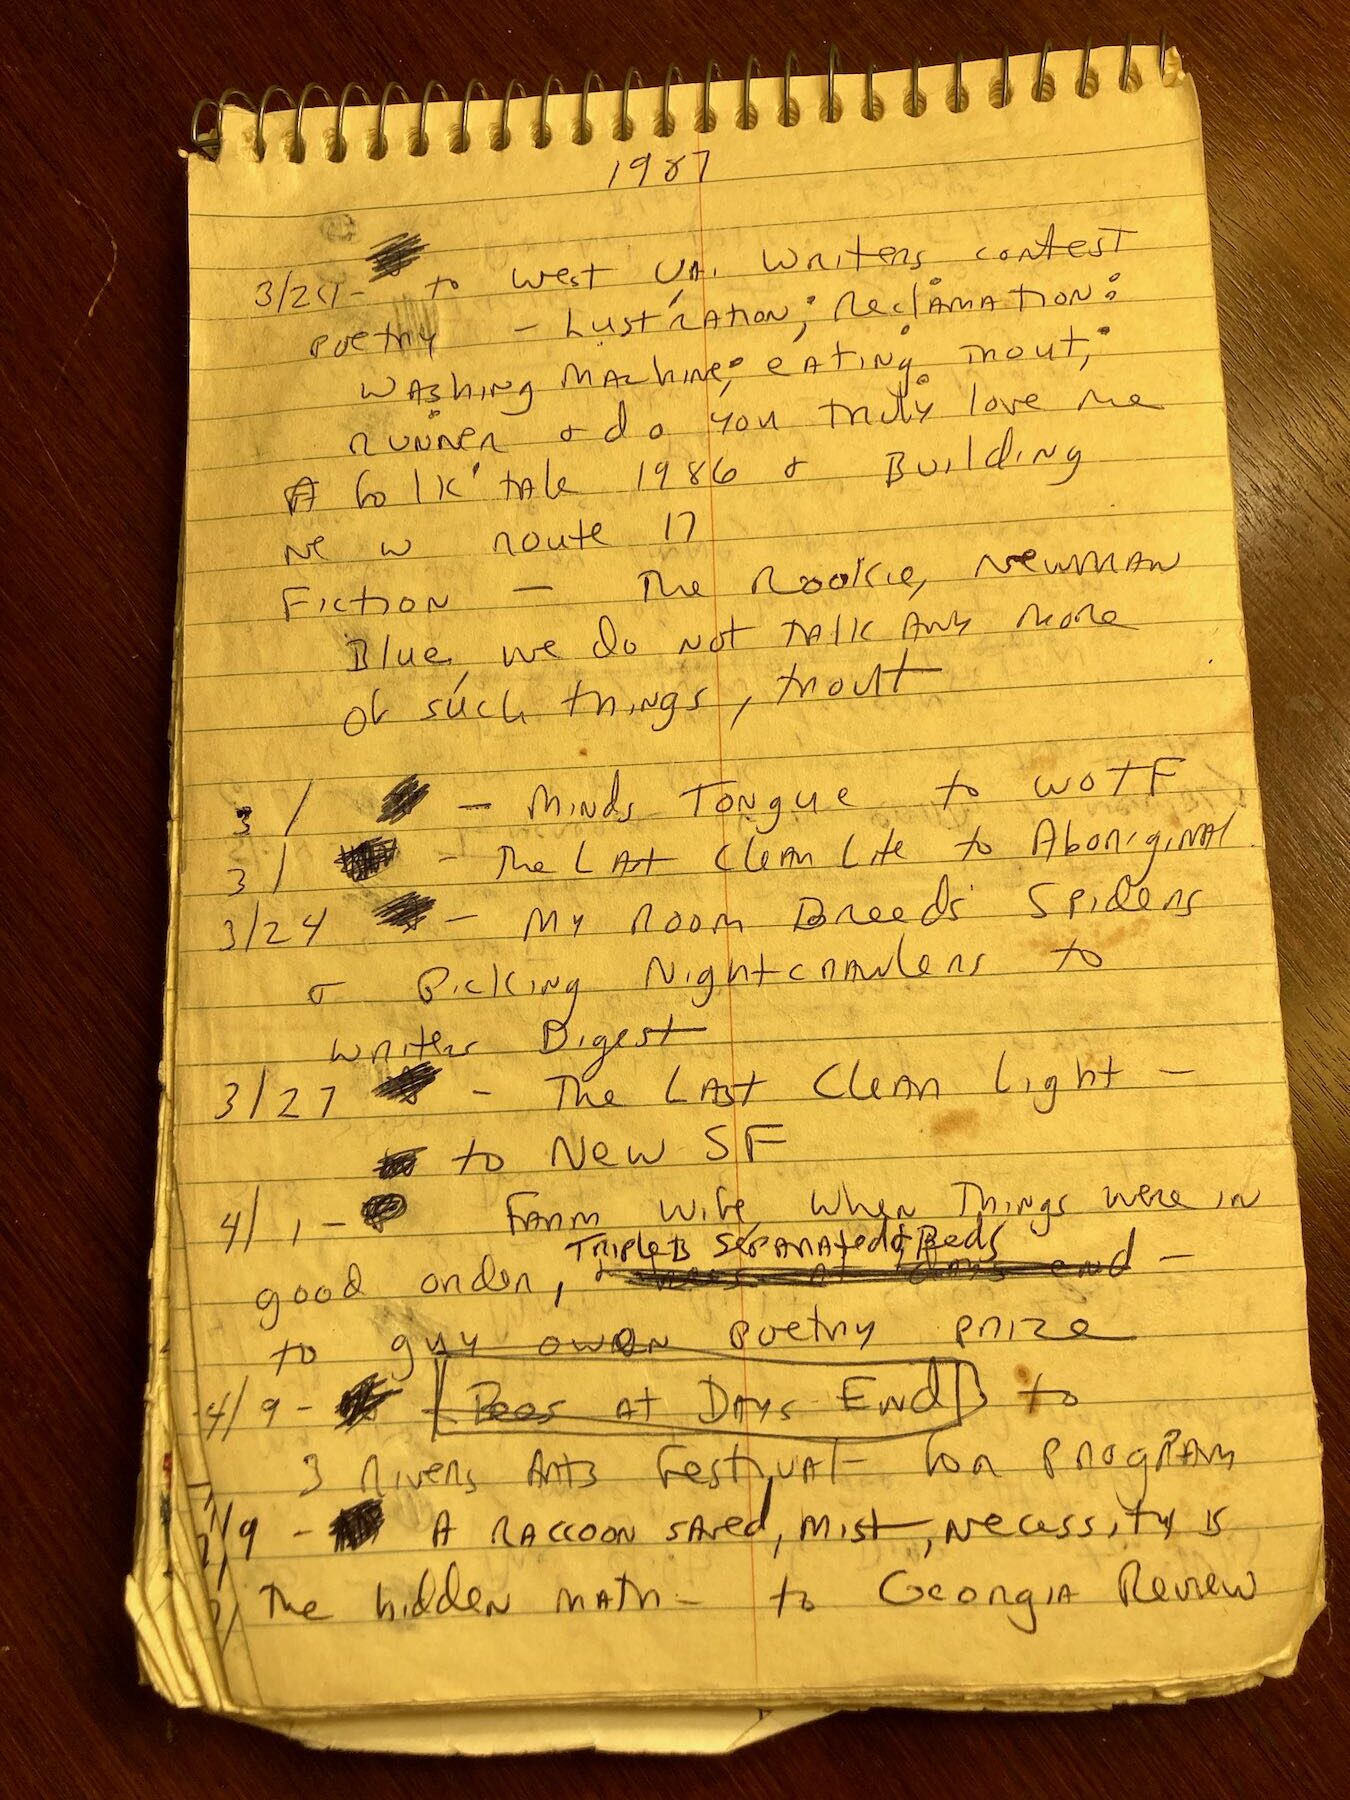 1987
3/20 - to West VA. Writers contest
poetry - Lustration; Reclamation;
Washing Machine; eating trout;
Runner & do you truly love me
A folk tale 1986 & Building
new route 17
Fiction - The Rookie, Newman
Blue, we do not talk any more
of such things, trout
3/ - Minds Tongue to WOTF
3/ - The Last Clean Lite to Aboriginal
3/24 - My room Breeds Spiders
& Picking Nightcrawlers to
writers Digest
3/27 - The Last Clean Light -
to New SF
4/1 - Farm wife, When Things were in
Triplets Separated & Beds
good order, at days end -
to guy owen poetry prize
4/9 - Bees at Days End to
3 Rivers Arts Festival for program
/9 - A raccoon saved, mist, necessity is
The hidden math - to Georgia Review